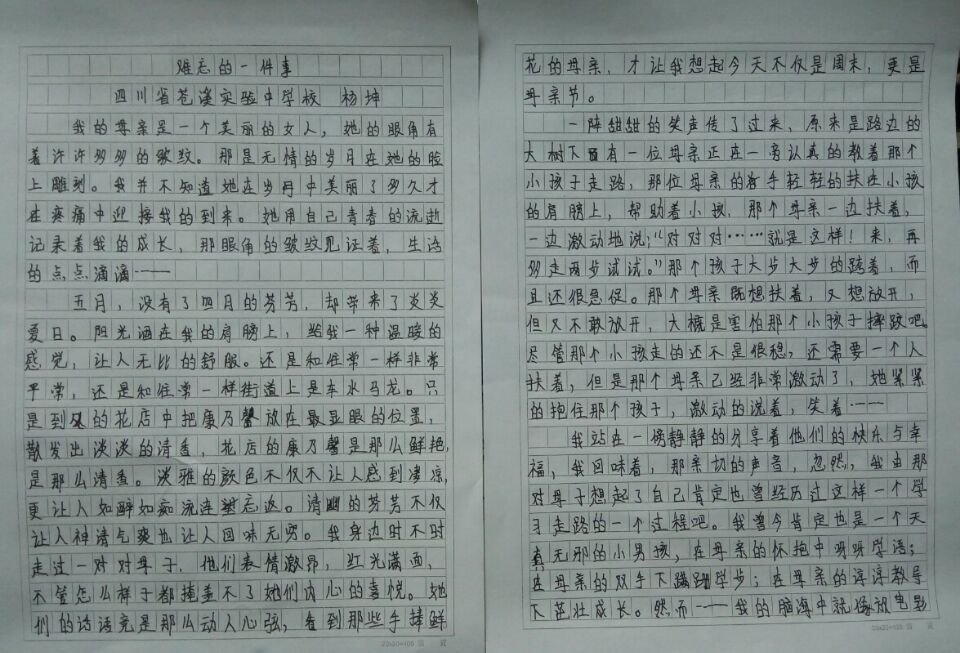 难忘的一件事
四川省苍溪实验中学校 杨坤
我的母亲是一个美丽的女人，她的眼角有
着许许多多的皱纹。那是无情的岁月在她的脸
上雕刻。我并不知道她在岁月中美丽了多久才
在疼痛中迎接我的到来。她用自己青春的流逝
记录着我的成长，那眼角的皱纹见证着，生活
的点点滴滴——
五月，没有了四月的芬芳，却带来了炎炎
夏日。阳光洒在我的肩膀上，给我一种温暖的
感觉，让人无比的舒服。还是和往常一样非常
平常，还是和往常一样街道上是车水马龙。只
是到处的花店中把康乃馨放在最显眼的位置，
散发出淡淡的清香，花店的康乃馨是那么鲜艳，
是那么清香。淡雅的颜色不仅不让人感到凄凉，
更让人如醉如痴流连忘返。清幽的芬芳不仅
让人神清气爽也让人回味无穷。我身边时不时
走过一对对母子，他们表情激昂，红光满面，
不管怎么样子都掩盖不了她们内心的喜悦。她
们的话语竟是那么动人心弦，看到那些手捧鲜
花的母亲，才让我想起今天不仅是周末，更是
母亲节。
一阵甜甜的笑声传了过来，原来是路边的
大树下有一位母亲正在一旁认真的教着那个
小孩子走路，那位母亲的手轻轻的扶在小孩
的肩膀上，帮助着小孩，那个母亲一边扶着，
一边激动地说：“对对对……就是这样！来，再
多走两步试试。”那个孩子大步大步的跨着，而
且还很急促。那个母亲既想扶着，又想放开，
但又不敢放开，大概是害怕那个小孩子摔跤吧。
尽管那个小孩走的还不是很稳，还需要一个人
扶着，但是那个母亲已经非常激动了，她紧紧
的抱住那个孩子，激动的说着，笑着——
我站在一旁静静的分享着他们的快乐与幸
福，我回味着，那亲切的声音，忽然，我由那
对母子想起了自己肯定也曾经历过这样一个学
习走路的一个过程吧。我曾今肯定也是一个天
真无邪的小男孩，在母亲的怀抱中呀呀学语；
在母亲的双手下蹒跚学步；在母亲的谆谆教导
下茁壮成长。然而——我的脑海中就像放电影